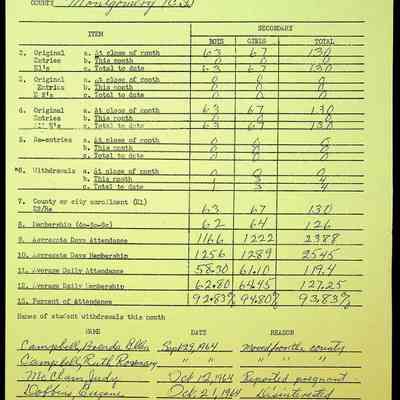 COUNTY Montgomery
SECONDARY
ITEM BOYS GIRLS TOTAL
2. Original a. At close of month 63 67 130
Entries b. This month 0 0 0
E1's c. Total to date 63 67 130
3. Original a. At close of month 0 0 0
Entries b. This month 0 0 0
E2's c. Total to date 0 0 0
4. Original a. At close of month 63 67 130
Entries b. This month 0 0 0
All E's c. Total to date 63 67 130
5. Re-entries a. At close of month 0 0
b. This month 0 0
c. Total to date 0 0
*6. Withdrawals a. At close of month 0 0
b. This month 1 3 4
c. Total to date 1 3 4
7. County or city enrollment (E1)
63 67 130
8. Membership 62 64 126
9. Aggregate Days Attendance 1166 1222 2388
10. Aggregate Days Membership 1256 1289 2545
11. Average Daily Attendance 58.30 61.10 119.4
12. Average Daily Membership 62.80 64.45 127.25
13. Percent of Attendance 92.83% 94.80% 93.83%
Names of student withdrawals this month
NAME DATE REASON
Campbell, Brenda Ellen Sept 29, 1964 Moved from the county
Campbell, Ruth Rosemary " " " " "
McClain, Judy Oct 12, 1964 Reported pregnant
Dobbins, Eugene Oct 21, 1964 Disinterested